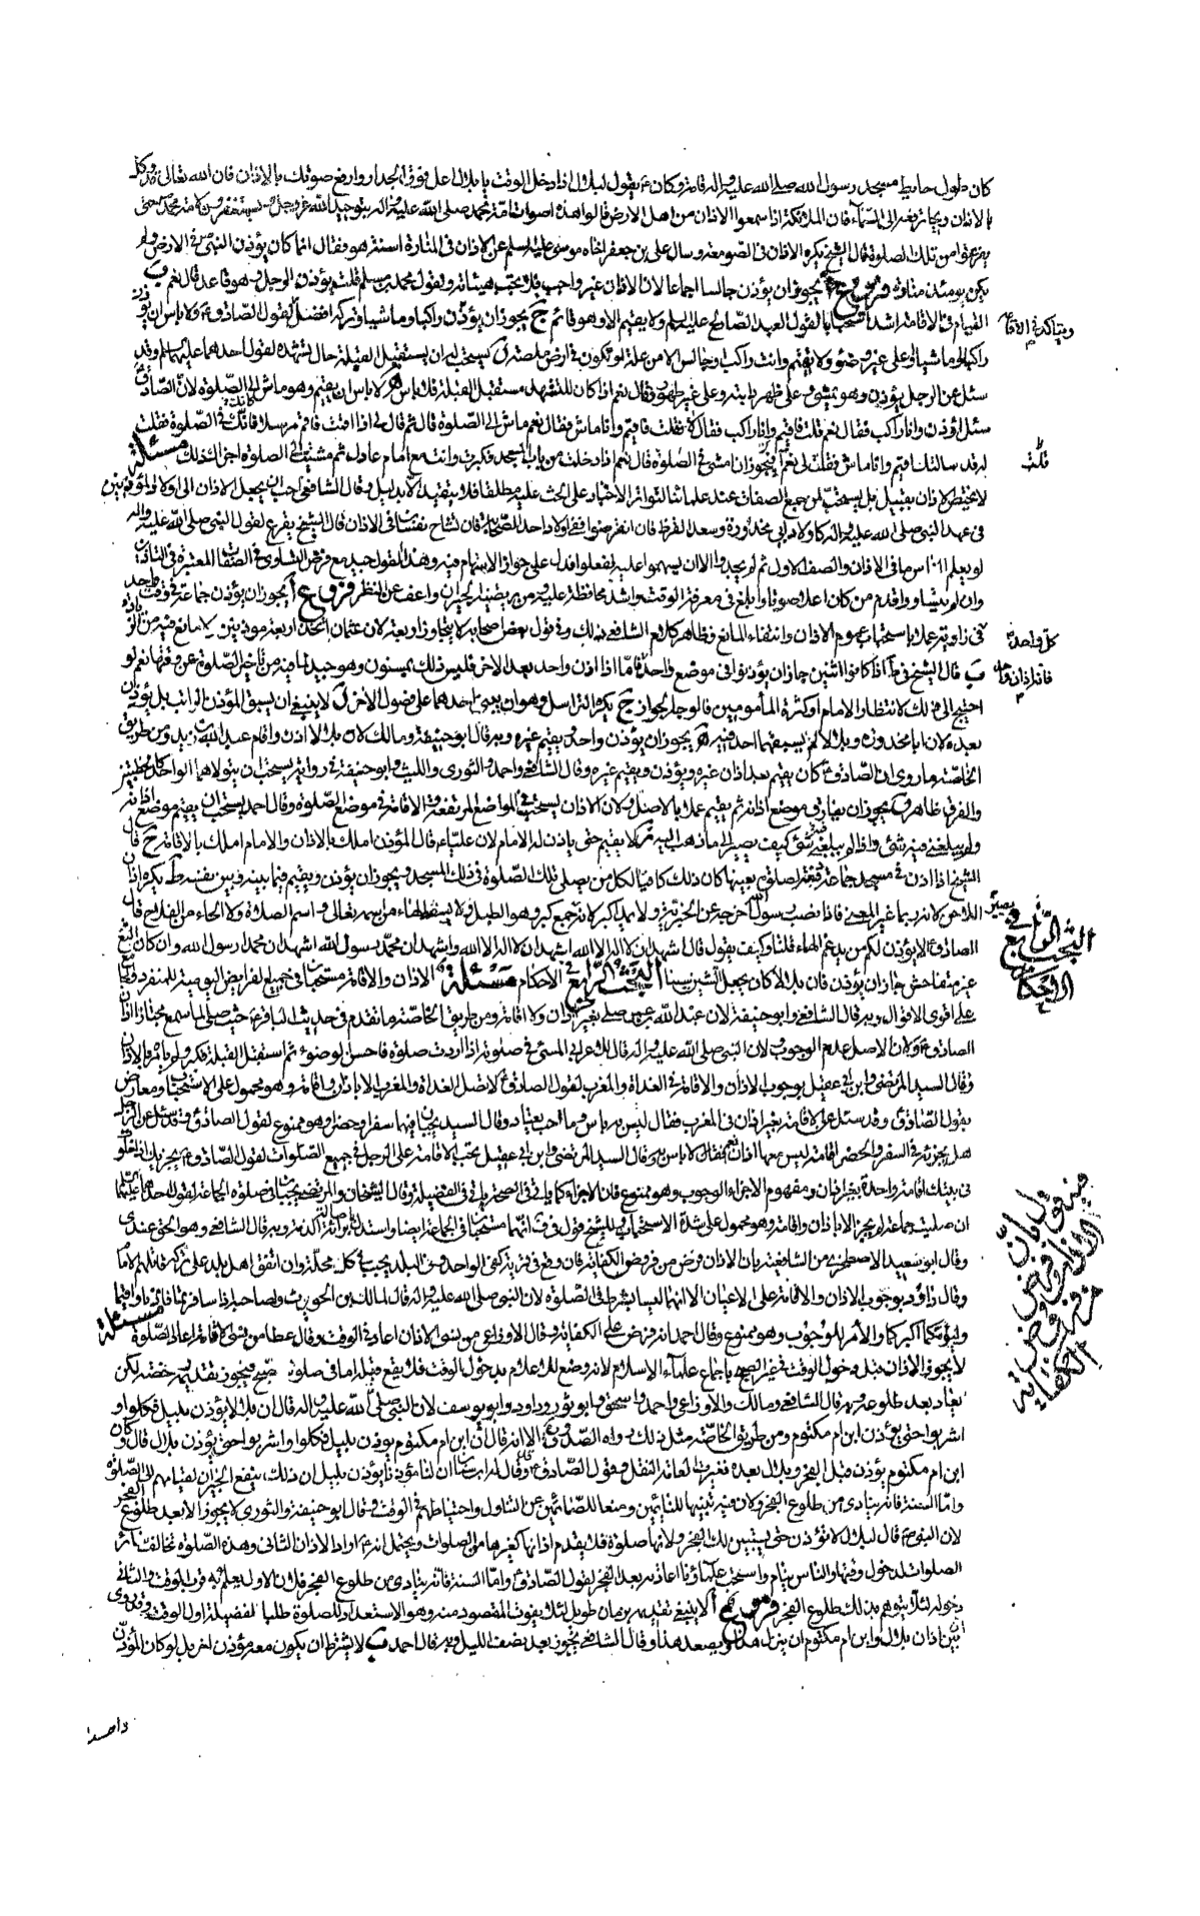 كان طول حايط مسجد رسول الله صلى الله عليه واله قامة وكان ع يقول لبلال اذا دخل الوقت يا بلال اعل فوق الجدار وارفع صوتك بالاذان فان الله تعالى قد وكل
بالاذان ريحا ترفعه الى السماء فان الملائكة اذا سمعوا الاذان من اهل الارض قالوا هذه اصوات امة محمد صلى الله عليه واله بتوحيد الله عز وجل ويستغفرون لامة محمد حتى
يفرغوا من تلك الصلوة قال الشيخ يكره الاذان في الصومعة وسال علي بن جعفر اخاه موسى عليه السلم عن الاذان في المنارة اسنة هو فقال انما كان يؤذن للنبي ص في الارض ولم
يكن يومئذ منارة فروع ا يجوز ان يؤذن جالسا اجماعا لان الاذان غير واجب فلا يجب هيئاته ولقول محمد بن مسلم قلت يؤذن الرجل وهو قاعد قال نعم ب
القيام في الاقامة اشد استحبابا لقول العبد الصالح عليه السلم ولا يقيم الا وهو قائم ج يجوز ان يؤذن راكبا وماشيا وتركه افضل لقول الصادق ع لا باس ان يؤذن
راكبا او ماشيا او على غير وضوء ولا يقيم وانت راكب او جالس الا من علة او تكون في ارض ملصة د يستحب له ان يستقبل القبلة حال تشهده لقول احدهما عليهما السلم وقد
سئل عن الرجل يؤذن وهو يمشي او على ظهر دابته وعلى غير طهور فقال نعم اذا كان التشهد مستقبل القبلة فلا باس ه لا باس ان يقيم وهو ماش الى الصلوة لان الصادق ع
سئل اؤذن وانا راكب فقال نعم قلت فاقيم وانا راكب فقال لا فقلت فاقيم وانا ماش فقال نعم ماش الى الصلوة قال ثم قال لي اذا اقمت فاقم مترسلا فانك في الصلوة فقلت
له قد سالتك اقيم وانا ماش فقلت لي نعم ايجوز ان امشي في الصلوة قال نعم اذا دخلت من باب المسجد فكبرت وانت مع امام عادل ثم مشيت الى الصلوة اجزاك ذلك مسئلة
لا يختص الاذان بقبيل بل يستحب لمن جمع الصفات عند علمائنا لتواتر الاخبار على الحث عليه مطلقا فلا يتقيد الا بدليل وقال الشافعي احب ان يجعل الاذان الى اولاد المؤذنين
في عهد النبي صلى الله عليه واله كاولاد ابي محذورة وسعد القرظ فان انقرضوا ففي اولاد احد الصحابة فان تشاح نفسان في الاذان قال الشيخ يقرع لقول النبي صلى الله عليه واله
لو يعلم الناس ما في الاذان والصف الاول ثم لم يجدوا الا ان يستهموا عليه لفعلوا فدل على جواز الاستهام فيه وهذا القول جيد مع فرض التساوي في الصفات المعتبرة في التاذين
وان لم يتساووا قدم من كان اعلا صوتا وابلغ في معرفة الوقت واشد محافظة عليه ومن يرتضيه الجيران واعف عن النظر فروع ا يجوز ان يؤذن جماعة في وقت واحد
كل واحد
في زاوية عملا باستحباب عموم الاذان وانتفاء المانع وظاهر كلام الشافعي ذلك وفي قول بعض اصحابه لا يتجاوز اربعة لان عثمان اتخذ اربعة مؤذنين ولا مانع فيه من الزيادة
ب قال الشيخ في ط اذا كانوا اثنين جاز ان يؤذنوا في موضع واحد فاما اذا اذن واحد بعد الاخر فليس ذلك بمسنون وهو جيد لما فيه من تاخير الصلوة عن وقتها نعم لو
احتيج الى ذلك لانتظار الامام او كثرة المأمومين فالوجه الجواز ج يكره التراسل وهو ان يبني احدهما على فصول الاخر د لا ينبغي ان يسبق المؤذن الراتب بل يؤذن
بعده لان ابا محذورة وبلالا لم يسبقهما احد فيه ه يجوز ان يؤذن واحد ويقيم غيره وبه قال ابو حنيفة ومالك لان بلالا اذن واقام عبد الله بن زيد ومن طريق
الخاصة ما روي ان الصادق ع كان يقيم بعد اذان غيره ويؤذن ويقيم غيره وقال الشافعي واحمد والثوري والليث وابو حنيفة في رواية يستحب ان يتولاهما الواحد كالخطبتين
والفرق ظاهر و يجوز ان يفارق موضع اذانه ثم يقيم عملا بالاصل ولان الاذان يستحب في المواضع المرتفعة والاقامة في موضع الصلوة وقال احمد يستحب ان يقيم موضع اذانه
ولم يبلغني فيه شئ واذا لم يبلغه فيه شئ كيف يصير الى ما ذهب اليه ز لا يقيم حتى ياذن له الامام لان عليا ع قال المؤذن املك بالاذان والامام املك بالاقامة ح قال
الشيخ اذا اذن في مسجد جماعة دفعة لصلوة بعينها كان ذلك كافيا لكل من يصلي تلك الصلوة في ذلك المسجد ويجوز ان يؤذن ويقيم فيما بينه وبين نفسه ط يكره اذان
اللاحن لانه ربما غير المعنى فاذا نصب رسول الله اخرجه عن الخبرية ولا يمد اكبر لانه جمع كبر وهو الطبل ولا يسقط الهاء من اسمه تعالى واسم الصلاة ولا الحاء من الفلاح قال
الصادق ع لا يؤذن لكم من يدغم الهاء قلنا وكيف يقول قال اشهد ان لا اله الا الله اشهد ان لا اله الا الله واشهد ان محمد رسول الله اشهدان محمد رسول الله وان كان الثغ
غير متفاحش جاز ان يؤذن فان بلالا كان يجعل الشين سينا البحث الرابع في الاحكام مسئلة الاذان والاقامة مستحبان في جميع الفرائض اليومية للمنفرد والجامع
على اقوى الاقوال وبه قال الشافعي وابو حنيفة لان عبد الله بن عمر صلى بغير اذان ولا اقامة ومن طريق الخاصة ما تقدم في حديث الباقر ع حيث صلى لما سمع مجتازا اذان
الصادق ع ولان الاصل عدم الوجوب ولان النبي صلى الله عليه واله قال للاعرابي المسئ في صلوته اذا اردت صلوة فاحسن الوضوء ثم استقبل القبلة فكبر ولم يامره بالاذان
وقال السيد المرتضى وابن ابي عقيل بوجوب الاذان والاقامة في الغداة والمغرب لقول الصادق ع لا تصل الغداة والمغرب الا باذان واقامة وهو محمول على الاستحباب ومعارض
بقول الصادق ع وقد سئل عن الاقامة بغير اذان في المغرب فقال ليس به باس وما احب يعتاد وقال السيد يجبان فيهما سفرا وحضرا وهو ممنوع لقول الصادق ع وقد سئل عن الرجل
هل يجزئه في السفر والحضر اقامة ليس معها اذان فقال نعم لا باس به وقال السيد المرتضى وابن ابي عقيل يجب الاقامة على الرجل في جميع الصلوات لقول الصادق ع يجزيك اذا خلوت
في بيتك اقامة واحدة بغير اذان ومفهوم الاجزاء الوجوب وهو ممنوع فان الاجزاء كما ياتي في الصحة ياتي في الفضيلة وقال الشيخان والمرتضى يجبان في صلوة الجماعة لقول احدهما عليهما السلم
ان صليت جماعة لم يجز الا باذان واقامة وهو محمول على شدة الاستحباب وللشيخ قول في ف انهما مستحبان في الجماعة ايضا واستدل باصالة براءة الذمة وبه قال الشافعي وهو الحق عندي
وقال ابو سعيد الاصطخري من الشافعية بان الاذان فرض من فروض الكفاية فان وقع في قرية كفى الواحد وفي البلد يجب في كل محلة وان اتفق اهل بلد على تركه قاتلهم الامام
وقال داود بوجوب الاذان والاقامة على الاعيان الا انهما ليسا بشرط في الصلوة لان النبي صلى الله عليه واله قال لمالك بن الحويرث ولصاحبه اذا سافرتما فاذنا واقيما
وليؤمكما اكبركما والامر للوجوب وهو ممنوع وقال احمد انه فرض على الكفاية وقال الاوزاعي من نسي الاذان اعاد في الوقت وقال عطا من نسي الاقامة اعاد الصلوة مسئلة
لا يجوز الاذان قبل دخول الوقت في غير الصبح باجماع علماء الاسلام لانه وضع للاعلام بدخول الوقت فلا يقع قبله اما في صلوة الصبح فيجوز تقديمه رخصة لكن
يعاد بعد طلوعه وبه قال الشافعي ومالك والاوزاعي واحمد واسحق وابو ثور وداود وابو يوسف لان النبي صلى الله عليه واله قال ان بلالا يؤذن بليل فكلوا و
اشربوا حتى يؤذن ابن ام مكتوم ومن طريق الخاصة مثل ذلك رواه الصدوق ع الا انه قال ان ابن ام مكتوم يؤذن بليل فكلوا واشربوا حتى يؤذن بلال قال وكان
ابن ام مكتوم يؤذن قبل الفجر وبلال بعده فغيرت العامة النقل ويقول الصادق ع وقال له ابن سنان ان لنا مؤذنا يؤذن بليل ان ذلك ينفع الجيران لقيامهم الى الصلوة
واما السنة فانه ينادى من طلوع الفجر وكان فيه تنبيها للنائمين ومنعا للصائمين عن التناول واحتياطهم في الوقت وقال ابو حنيفة والثوري لا يجوز الا بعد طلوع الفجر
لان النبي ص قال لبلال لا تؤذن حتى يستبين لك الفجر ولانها صلوة فلا يقدم اذانها كغيرها من الصلوات ويحتمل انه ع اراد الاذان الثاني وهذه الصلوة تخالف سائر
الصلوات لدخول وقتها والناس نيام واستحب علماؤنا اعادته بعد الفجر لقول الصادق ع واما السنة فانه ينادى من طلوع الفجر فلان الاول يعلم به قرب الوقت والثاني
دخوله لئلا يتوهم بذلك طلوع الفجر فروع ا لا ينبغي تقديمه بزمان طويل لئلا يفوت المقصود منه وهو الاستعداد للصلوة طلبا لفضيلة اول الوقت وقد روى
بين اذان بلال وابن ام مكتوم ان ينزل هذا ويصعد هذا وقال الشافعي يجوز بعد نصف الليل وبه قال احمد ب لا يشترط ان يكون معه مؤذن اخر بل لو كان المؤذن
واحدا
ويتاكد في الاقامة
قلت
البحث الرابع في الاحكام
في قول بان الاذان فرض من فروض الكفاية